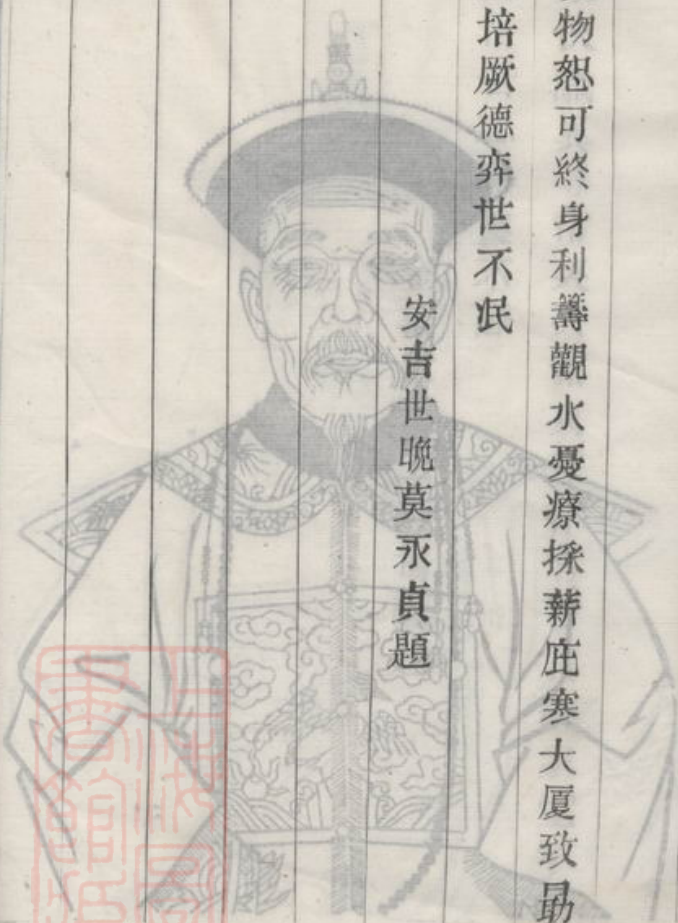 物恕可終身利籌觀水憂療採薪庇寒大厦致勗
培厥德弈世不泯
安吉世晚莫永貞題
上海圖
書館藏